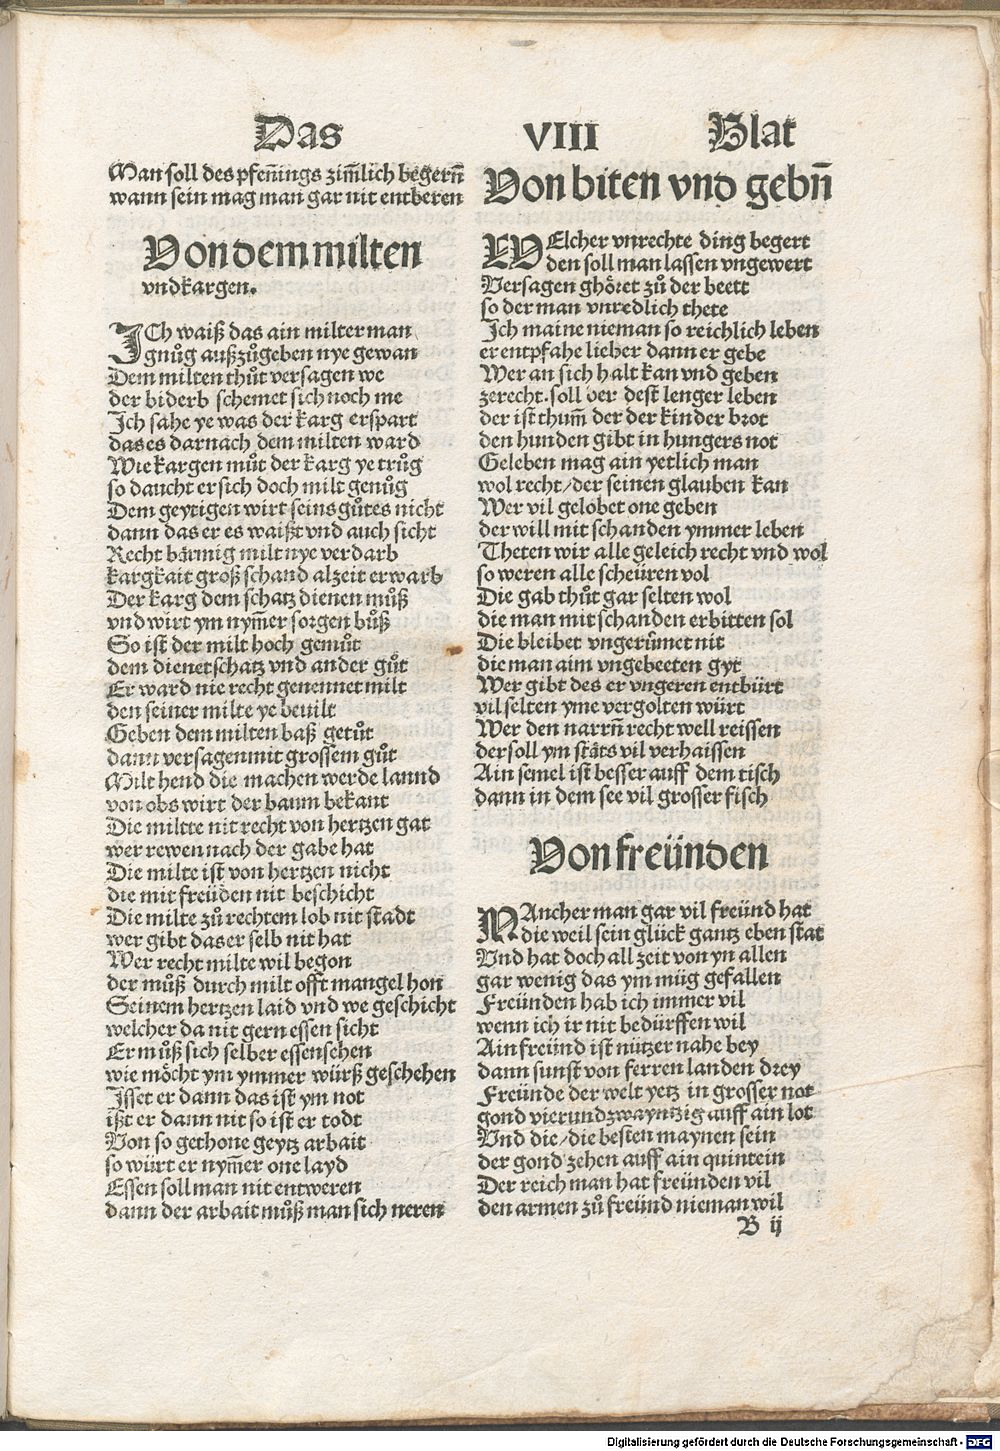 Das VIII Blat
Man soll des pfeñings zim̃lich begerñ
wann sein mag man gar nit entberen
Von dem milten
vnd kargen.
ICh waiß das ain milter man
gnůg außzůgeben nye gewan
Dem milten thůt versagen we
der biderb schemet sich noch me
Ich sahe ye was der karg erspart
das es darnach dem milten ward
Wie kargen můt der karg ye trůg
so daucht er sich doch milt genůg
Dem geytigen wirt seins gůtes nicht
dann das er es waißt vnd auch sicht
Recht bärmig milt nye verdarb
kargkait groß schand alzeit erwarb
Der karg dem schatz dienen můß
vnd wirt ym nym̃er sorgen bůß
So ist der milt hoch gemůt
dem dienet schatz vnd ander gůt
Er ward nie recht genennet milt
den seiner milte ye beuilt
Geben dem milten baß getůt
dann versagen mit grossem gůt
Milt hend die machen werde lannd
von obs wirt der baum bekant
Die miltte nit recht von hertzen gat
wer rewen nach der gabe hat
Die milte ist von hertzen nicht
die mit freüden nit beschicht
Die milte zů rechtem lob nit stadt
wer gibt das er selb nit hat
Wer recht milte wil begon
der můß durch milt offt mangel hon
Seinem hertzen laid vnd we geschicht
welcher da nit gern essen sicht
Er můß sich selber essen sehen
wie möcht ym ymmer würß geschehen
Isset er dann das ist ym not
ißt er dann nit so ist er todt
Von so gethone geytz arbait
so würt er nym̃er one layd
Essen soll man nit entweren
dann der arbait můß man sich neren
Von biten vnd gebñ
WElcher vnrechte ding begert
den soll man lassen vngewert
Versagen ghöret zů der beett
so der man vnredlich thete
Ich maine nieman so reichlich leben
er entpfahe lieber dann er gebe
Wer an sich halt kan vnd geben
zerecht. soll ver dest lenger leben
der ist thum̃ der der kinder brot
den hunden gibt in hungers not
Geleben mag ain yetlich man
wol recht/der seinen glauben kan
Wer vil gelobet one geben
der will mit schanden ymmer leben
Theten wir alle geleich recht vnd wol
so weren alle scheüren vol
Die gab thůt gar selten wol
die man mit schanden erbitten sol
Die bleibet vngerümet nit
die man aim vngebeeten gyt
Wer gibt des er vngeren entbürt
vil selten yme vergolten würt
Wer den narrñ recht well reissen
der soll ym stäts vil verhaissen
Ain semel ist besser auff dem tisch
dann in dem see vil grosser fisch
Von freünden
MAncher man gar vil freünd hat
die weil sein glück gantz eben stat
Vnd hat doch all zeit von yn allen
gar wenig das ym müg gefallen
Freünden hab ich immer vil
wenn ich ir nit bedürffen wil
Ain freünd ist nützer nahe bey
dann sunst von ferren landen drey
Freünde der welt yetz in grosser not
gond vierundzwayntzig auff ain lot
Vnd die/die besten maynen sein
der gond zehen auff ain quintein
Der reich man hat freünden vil
den armen zů freünd nieman wil
B ij
Digitalisierung gefördert durch die Deutsche Forschungsgemeinschaft - DFG